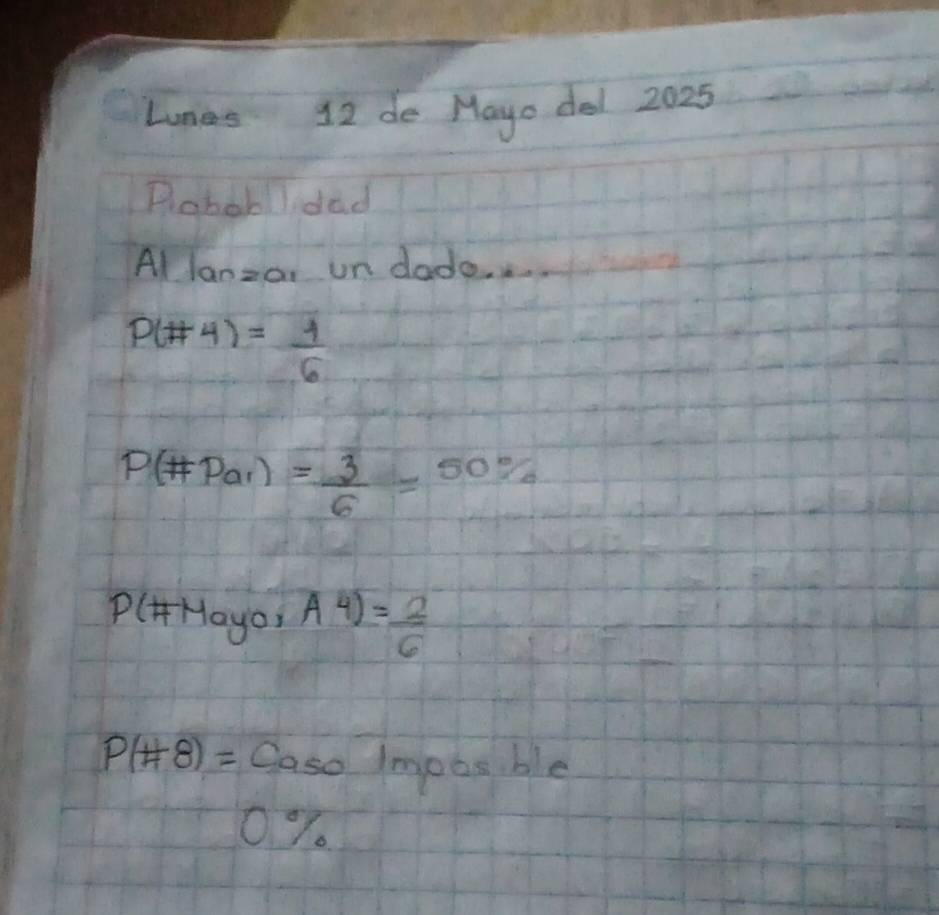 Lunes 12 de Mayo del 2025
Probabilidad
Al lanzar un dado.....
P(#4) = 1/6
P(#Par) = 3/6 = 50%
P(#Mayor A 4) = 2/6
P(#8) = Caso Imposible
0%